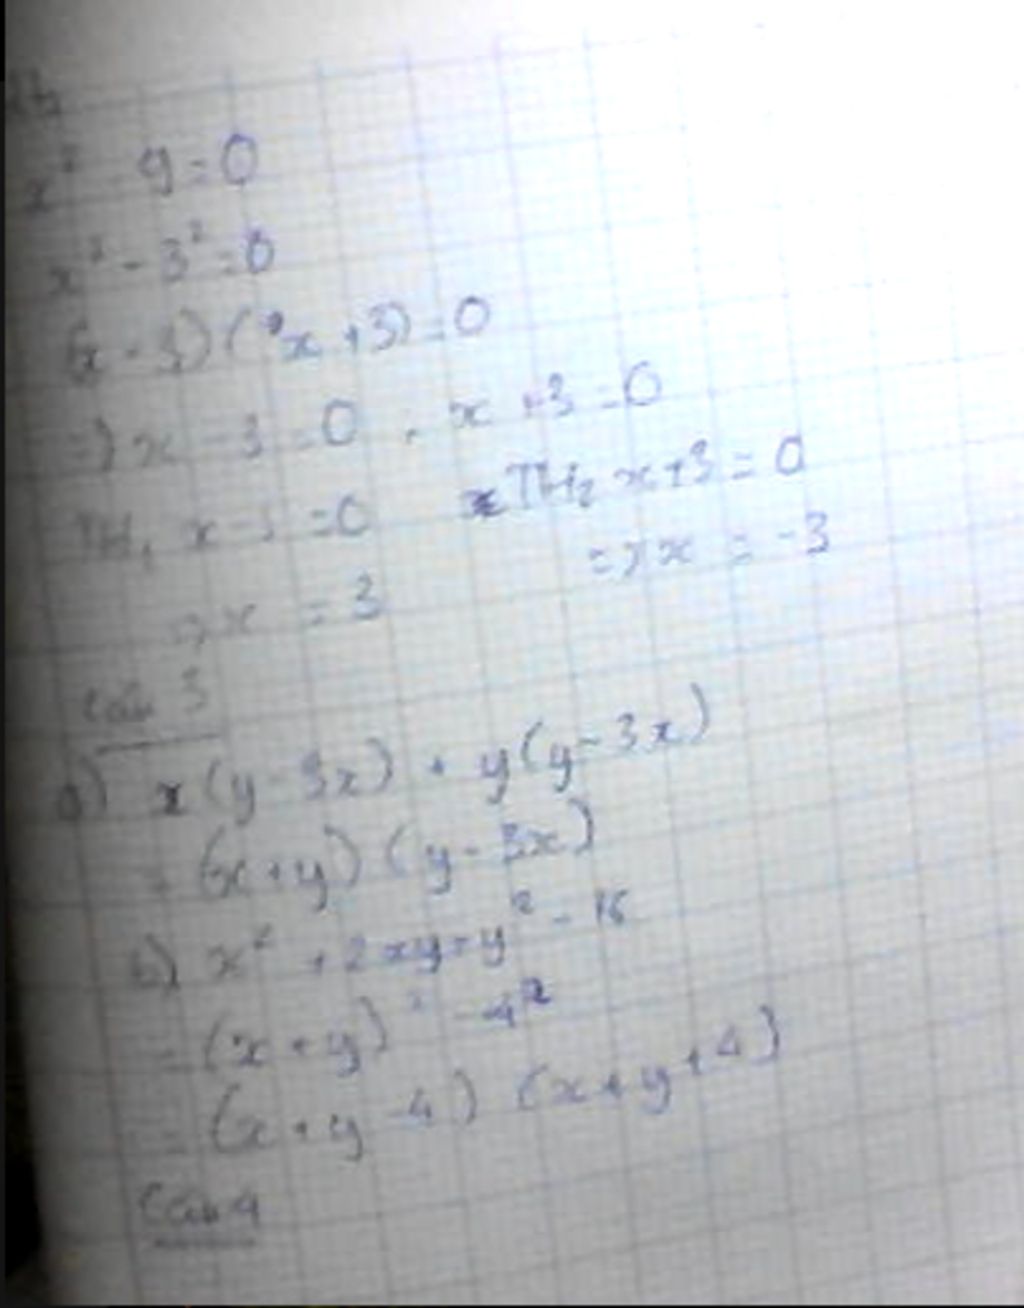 x² - 9 = 0
x² - 3² = 0
(x - 3)(x + 3) = 0
=> x - 3 = 0 , x + 3 = 0
TH₁ x - 3 = 0 TH₂ x + 3 = 0
=> x = 3 => x = -3
Câu 3
a) x(y - 3x) + y(y - 3x)
= (x + y)(y - 3x)
b) x² + 2xy + y² - 16
= (x + y)² - 4²
= (x + y - 4)(x + y + 4)
Câu 4